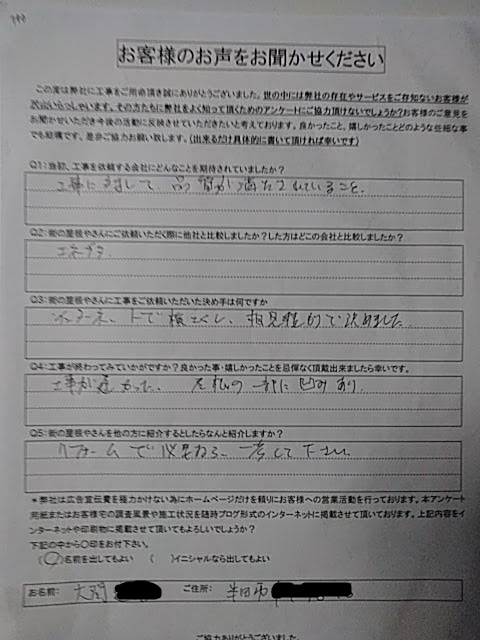 お客様のお声をお聞かせください
この度は弊社に工事をご用命頂き誠にありがとうございました。世の中には弊社の存在やサービスをご存知ないお客様が
沢山いらっしゃいます。その方たちに弊社をよく知って頂くためのアンケートにご協力頂けないでしょうか?お客様のご意見を
お聞かせいただき今後の活動に反映させていただきたいと考えております。良かったこと、嬉しかったことどのような些細な事
でも結構です。是非ご協力お願い致します。(出来るだけ具体的に書いて頂ければ幸いです)
Q1:当初、工事を依頼する会社にどんなことを期待されていましたか?
工事に対して、品質が満たされていること。
Q2:街の屋根やさんにご依頼いただく際に他社と比較しましたか?した方はどこの会社と比較しましたか?
エネプラ
Q3:街の屋根やさんに工事をご依頼いただいた決め手は何ですか
インターネットで検さくし、相見積的で決めました
Q4:工事が終わってみていかがですか?良かった事・嬉しかったことを忌憚なく頂戴出来ましたら幸いです。
工事が速かった。 足場の一部に凹みあり
Q5:街の屋根やさんを他の方に紹介するとしたらなんと紹介しますか?
リフォームで必要なら、一考して下さい
*弊社は広告宣伝費を極力かけない為にホームページだけを頼りにお客様への営業活動を行っております。本アンケート
用紙またはお客様宅の調査風景や施工状況を随時ブログ形式のインターネットに掲載させて頂いております。上記内容をイ
ンターネットや印刷物に掲載させて頂いてもよろしいでしょうか?
下記の中から○印をお付下さい。
(○)名前を出してもよい ( )イニシャルなら出してもよい
お名前: 大岡 ご住所: 半田市
ご協力ありがとうございました。